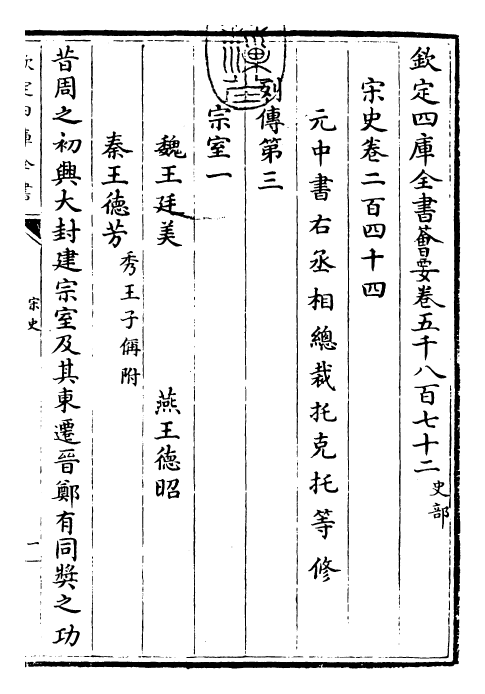 欽定四庫全書薈要卷五千八百七十二史部
宋史卷二百四十四
元中書右丞相總裁托克托等修
列傳第三
宗室一
魏王廷美 燕王徳昭
秦王徳芳秀王子偁附
昔周之初興大封建宗室及其東遷晉鄭有同奬之功
欽定四庫全書
宋史
一